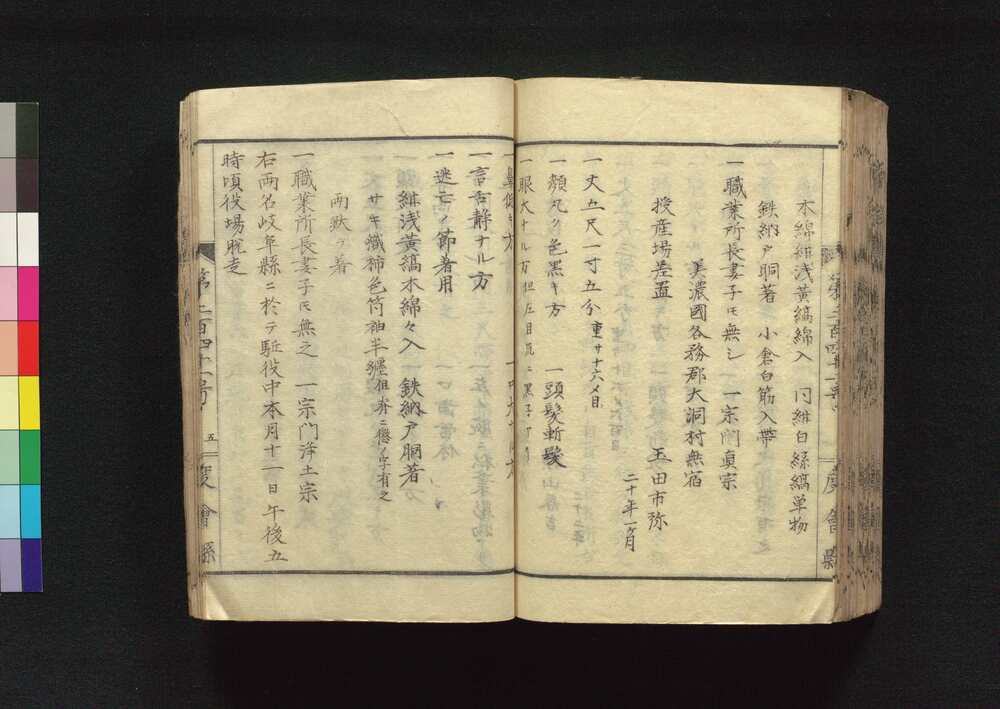 木綿紺浅黄縞綿入 同紺白絲縞単物
鉄納戸胴著 小倉白筋入帯
一職業所長妻子モ無シ 一宗門真宗
美濃國各務郡大洞村無宿
授産場差置 玉田市弥
二十年一ケ月
一丈五尺一寸五分 重サ十六メ目
一顔丸ク色黒キ方 一頭髪斬髪
一眼大ナル方
一鼻低キ方
一言舌静ナル方
一迯亡ノ節著用
紺浅黄縞木綿々入 一鉄納戸胴著
サキ織柿色筒袖半纏但背ニ懲ノ字有之
両默ヲ著
一職業所長妻子モ無之 一宗門浄土宗
右両名岐阜縣ニ於テ駈役中本月十一日午後五
時頃役場脱走
第二百四十一号 五 度會縣
度會縣